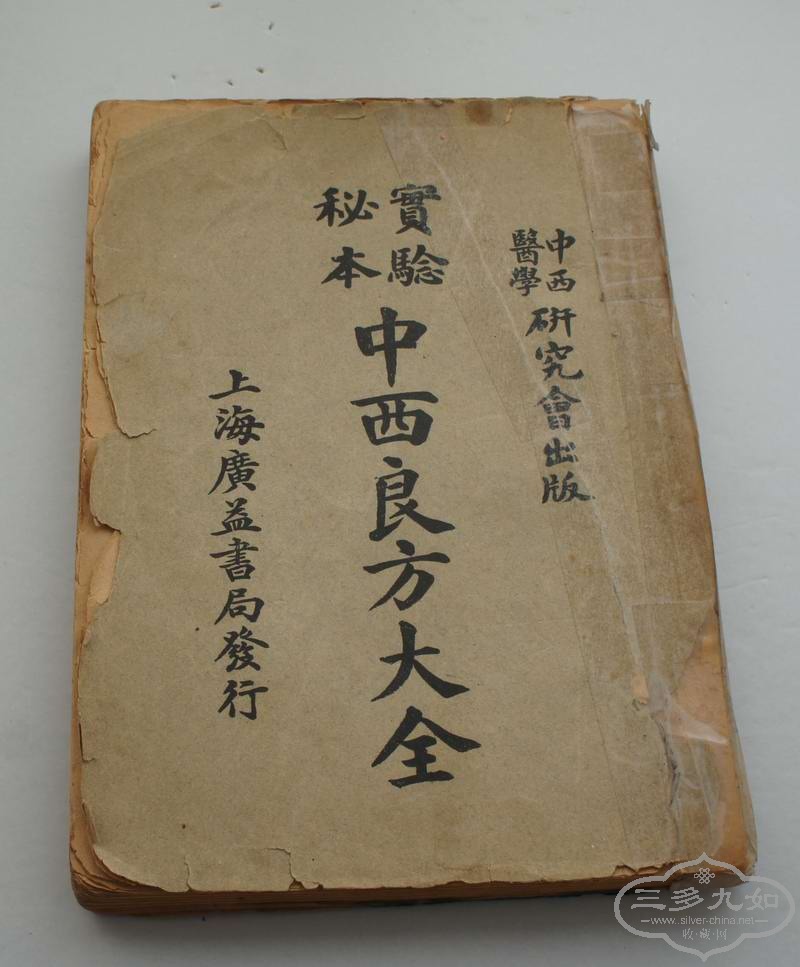 中西醫學研究會出版
實驗秘本
中西良方大全
上海廣益書局發行
三多九如
www.silver-china.net
收藏网